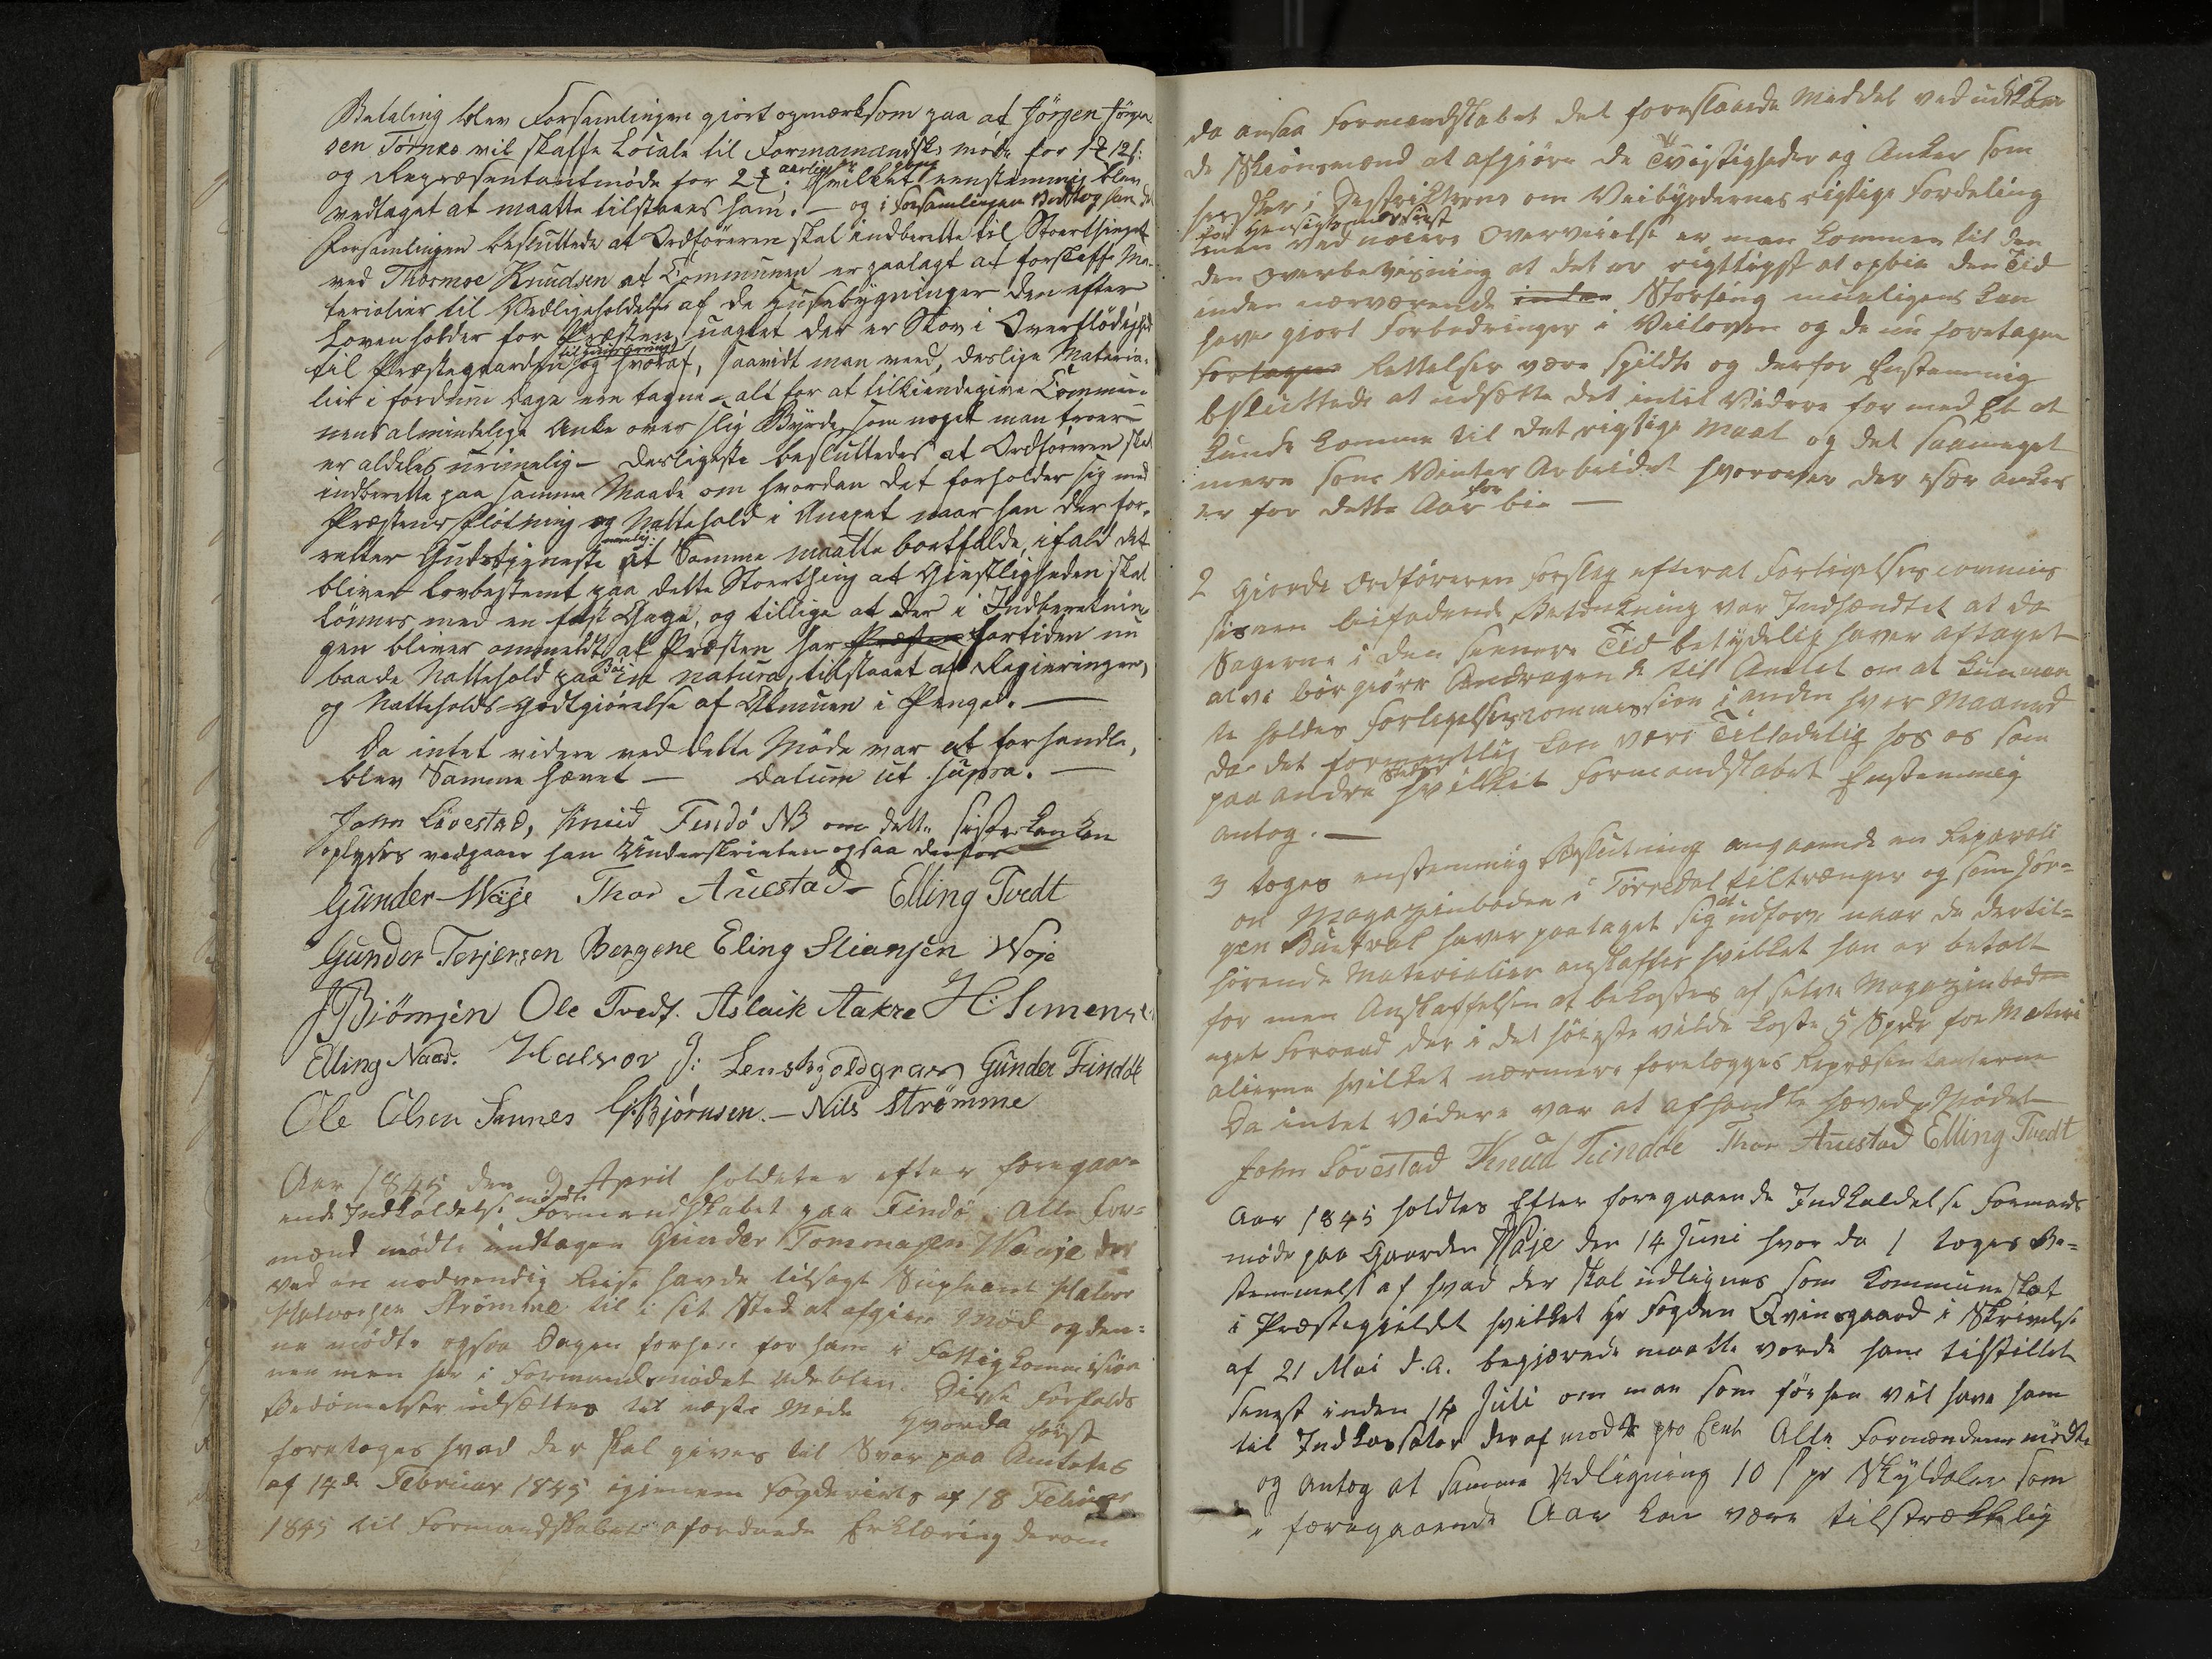 Betaling blev Forsamlingen giort opmærksom paa at Jörgen Jörgen-
sen Tornes vil skaffe Locale til Formamandsks möde for 1 12 s:
og Repræsentantmöde for 2 aarlig hvilket eenstemmig blev
vedtaget at maatte tilstaaes ham. — og i Forsamlingen Modtog han
Forsamlingen besluttede at Ordföreren skal indberette til Stoerthinget
ved Thormoe Knudsen at Communen er paalagt at forskaffe Ma-
terialier til Vedligeholdelse af de Huusebygninger den efter
Loven holder for Præsten, uagtet der er Skov i Overflödighed
til Præstegaarden og hvoraf, saavidt man veed, deslige Materia-
lier i fordum Dage ere tagne – alt for at tilkiendegive Commu-
nens almindelige Anke over slig Byrde, som noget man troer
er aldeles urimelig – Desligeste besluttedes at Ordföreren skal
indberette paa samme Maade om hvordan det forholder sig med
Præstens Flötning og Nattehold i Annexet naar han der for-
retter Gudstjeneste nemlig: at Samme maatte bortfalde, ifald det
bliver lovbestemt paa dette Stoerthing at Geistligheden skal
lönnes med en fast Gage, og tillige at der i Indberetnin-
gen bliver ommeldt at Præsten har Præsten fortiden nu
baade Nattehold paa in natura, tilstaaet af Regieringen,
og Natteholds-godtgiörelse af Almuen i Penge. —
Da intet videre ved dette Möde var at forhandle,
blev Samme hævet — Datum ut supra. —
John Lövestad, Knud Tindö NB om dette sidste kan
oplyses vedgaaer han Underskrivten ogsaa derfor
Gunder Waje Thor Auestad – Elling Tvedt
Gunder Terjersen Bergene Eling Stiansen Woje
J Biörnsen Ole Tvedt. Aslaik Aakre H: Simense
Elling Naas. Halvor J: Lenskjoldgrav Gunder Tindöe
Ole Olsen Sannes G: Bjørnsen. – Nils Strømme
Aar 1845 den 9 April holdtes efter foregaa-
ende Indkaldelse Formandskabet paa Tindö Alle For-
mænd mödte undtagen Gunder Tommasen Waaje der
ved en nødvendig Reise havde tilsagt Supleant Halvor
Halvorsen Strømme til i sit Sted at afgive Möd og den-
ne mödte ogsaa Dagen forhen for ham i Fattigkommision
nen men her i Formandsmödet udeblev. Disse Forfalds
Bedømmelser udsættes til næste Möde hvorda först
foretoges hvad der skal gives til Svar paa Amtets
af 14de Februar 1845 igjennem Fogderiets af 18 Februar
1845 til Formandskabet afordrede Erklæring derom
da ansaa Formandskabet det foreslaaede Middel ved udskibn
de Skiönsmænd at afgiöre de Tvistigheder og Anker som
hersker i Distrikterne om Veibyrdernes rigtige Fordeling
for Hensigtsmæssigst
men ved nøiere Overveielse er man kommen til den
den Overbeviisning at det er rigtigst at opbie den Tid
inden nærværende inden Storting mueligens kan
have giort Forbedringer i Veiloven og de nu foretagen
fortagne Rettelser være spildte og derfor Enstemmig
besluttede at udsætte det intil Videre for med Et at
kunde komme til det rigtige Maal og det saameget
mere som Vinter Arbeidet hvorover der især ankes
er for dette Aar for bie —
2 giorde Ordföreren Forslag efterat Forligelses commis
sionen beifoiende Betænkning var Indsendtet at da
Sagerne i den senere Tid betydelig haver aftaget
at vi bör giöre Andragende til Amtet om at kun maa
te holdes Forligelsescommission i anden hver Maaned
da det formentlig kan være Tilladelig hos os som
paa andre Steder hvilket Formandskabet Enstemmig
antog. —
3 toges enstemmig Beslutning angaaende en Reparati
on Magazinboden i Törredal tiltrænger og som Jör-
gen haver paataget sig at udføre naar de dertil-
hørende Materialier anskaffes hvilket han er betalt
for men Anskaffelsen at bekostes af selve Magazinbodens
eget Forraad der i det höieste vilde koste 5 Spdr for Materi
alierne hvilket nærmere forelægges Repræsentanterne
Da intet Videre var at afhandle hævedes Mödet
John Lövestad Knud Tindöe Thor Auestad Elling Tvedt
Aar 1845 holdtes Efter foregaaende Indkaldelse Formands
möde paa Gaarden Waje den 14 Juni hvor da 1 toges Be-
stemmelse af hvad der skal udlignes som Kommuneskat
i Præstegieldet hvilket Hr Fogden Qvinsgaard i Skrivelse
af 21 Mai d.A. begjærede maatte vorde ham tilstillet
senest inden 14 Juli om man som förhen vil have ham
til Indkassator deraf mod 4 pro Cent Alle Formændene mödte
og antog at samme Udligning 10 s pr Skyldaler som
i foregaaende Aar kan være tilstrækkelig